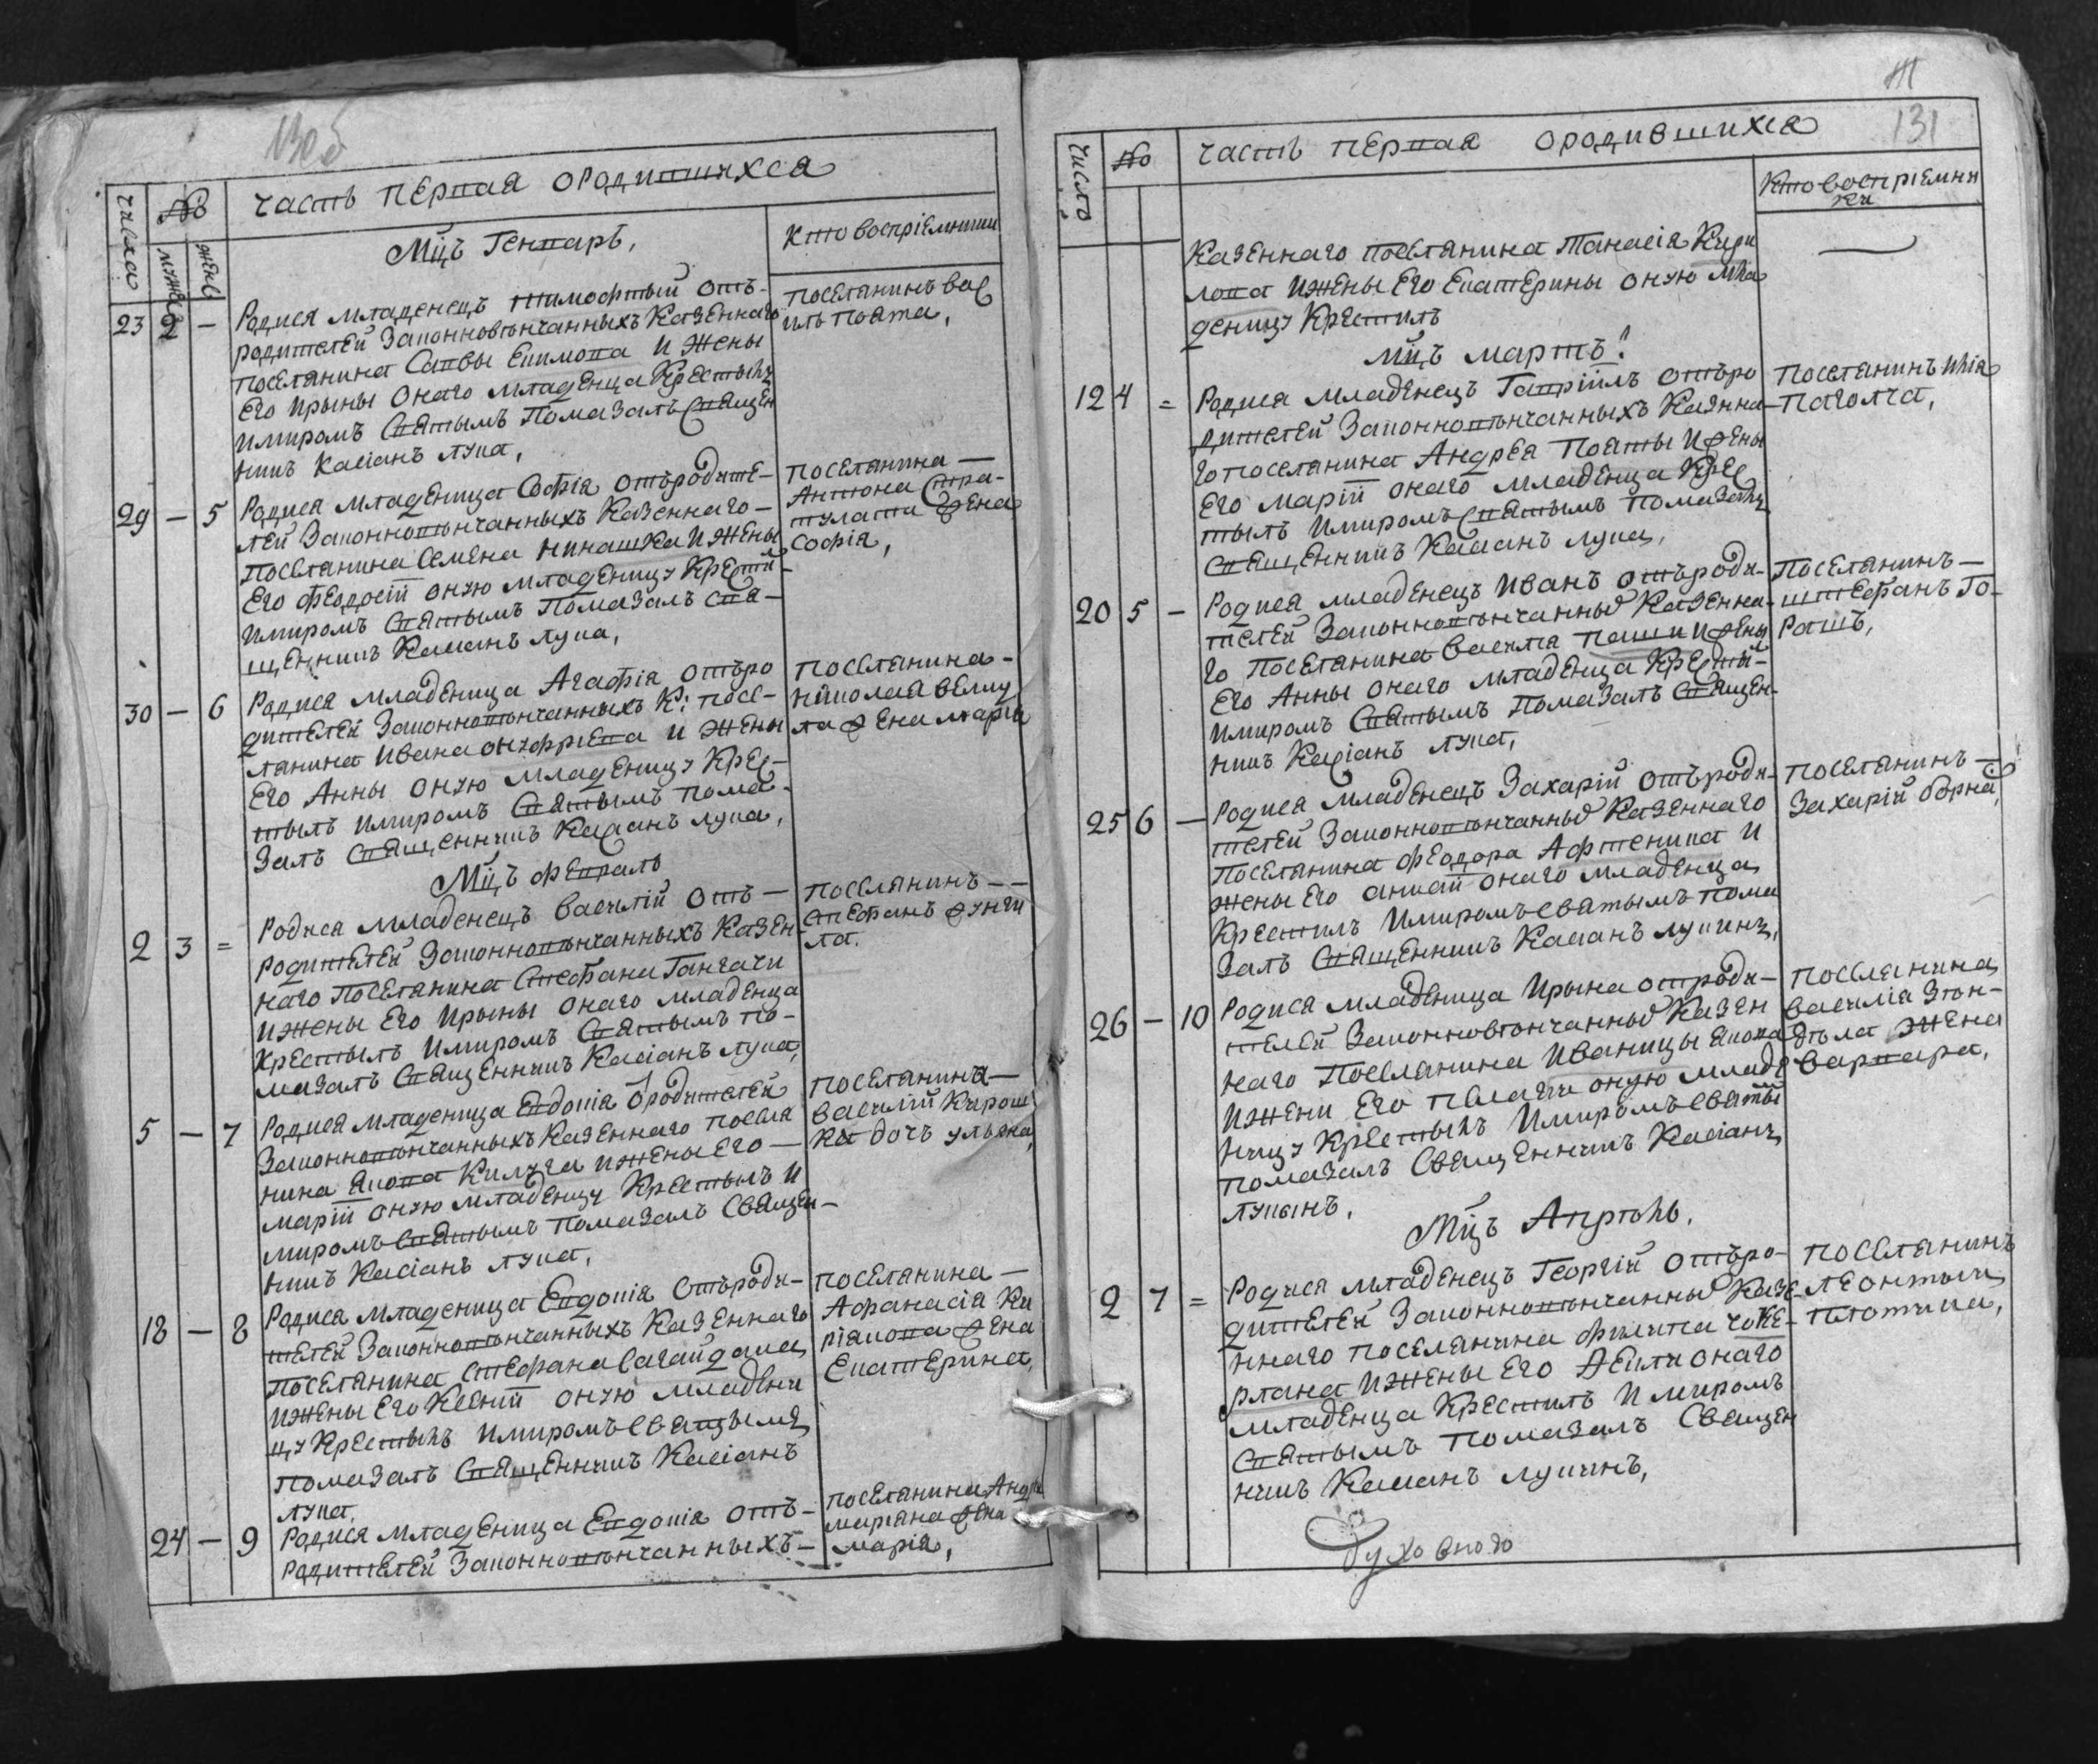 130б
часть первая ородившихся
число
№
мужес
женс
Мцъ Генварь,
Кто восприемники
23 2 —
Родися младенецъ Тимофтый отъ-
родителей законновѣнчанныхъ казеннаго
поселянина Саввы Екимова и жены
его Ирыны онаго младенца крестылъ
имиромъ святымъ помазалъ священ
никъ Касіанъ Лука,
поселянинъ Вас
иль Поята,
29 — 5
Родися младеница Софія отъродите-
лей законновѣнчанныхъ казеннаго-
поселянина Семена Кинашка и жены
его Феодосіи оную младеницу крести-
имиромъ святымъ помазалъ свя-
щенникъ Касианъ Лука,
поселянина —
Антона Стра-
тулата жена
Софія,
30 — 6
Родися младеница Агафія отъро
дителей законновѣнчанныхъ К: посе-
лянина Ивана Онуфриева и жены
его Анны оную младеницу крес-
тылъ имиромъ святымъ пома-
залъ священникъ Касианъ Лука,
поселянина-
николая
ла жена марія
Мцъ февраль
2 3 =
Родися младенецъ Василій отъ —
родителей законновѣнчанныхъ казен-
наго поселянина Стефана Гангачи
ижены его Ирыны онаго младенца
крестылъ имиромъ святымъ по-
мазалъ священникъ Касіанъ Лука,
поселянинъ —
стефанъ
ла.
5 — 7
Родися младеница Евдокія ородителей
законновѣнчанныхъ казеннаго посели
нина Якова Килуга ижены его —
марій оную младеницу крестылъ и
миромъ святымъ помазалъ священ-
никъ Касіанъ Лука,
поселянина —
василій Кирош
ка дочъ ульяна,
18 — 8
Родися младеница Евдокія отъроди-
телей законновѣнчанныхъ казеннаго
поселянина Стефана Сагайдака
ижены его Ксеніи оную младени
цу крестылъ имиромъ святымъ
помазалъ священникъ Касіанъ
Лука.
поселянина —
Афанасія Ки
ріакова жена
Екатерина,
24 — 9
Родися младеница Евдокія отъ-
родителей законновѣнчанныхъ —
поселянина Андр
марія,
131
число
№
часть первая ородившихся
Кто восприемни
ки
Казеннаго поселянина Танасія Кири
лова ижены его Екатерины оную мла
деницу крестилъ
мцъ мартъ:
12 4 =
Родися младенецъ Гавріилъ отъро
дителей законновѣнчанныхъ казенна-
го поселянина Андрея Пояты и жены
его марій онаго младенца крес
тылъ имиромъ святымъ помазалъ
священникъ Касианъ Лука,
поселянинъ Илія
Паголча,
20 5 —
Родися младенецъ Иванъ отъроди-
телей законновѣнчанныхъ казенна-
го поселянина Василія Паши и жены
его Анны онаго младенца крести-
имиромъ святымъ помазалъ священ-
никъ Касіанъ Лука,
поселянинъ —
штефанъ Го-
рашъ,
25 6 —
Родися младенецъ Захарій отъроди-
телей законновѣнчанныхъ казеннаго
поселянина Феодора Афтеника и
жены его онаго младенца
крестилъ имиромъ святымъ пома
залъ священникъ Касианъ Лукинъ,
поселянинъ —
Захарій борна,
26 — 10
Родися младеница Ирына отроди-
телей законновѣнчанныхъ казен
наго поселянина Иваницы Якова
ижени его пелагіи оную младе
ницу крестылъ имиромъ святы
помазалъ священникъ Касіанъ
Лукынъ.
поселянина
василіа
жена
варвара,
Мцъ Апрѣль.
2 7 =
Родися младенецъ Георгій отъро-
дителей законновѣнчанныхъ казе-
ннаго поселянина филипа чоке-
рлана ижены его онаго
младенца крестилъ и миромъ
святымъ помазалъ священ
никъ Касианъ Лукинъ,
поселянинъ
леонтый
плотчика,
духовного